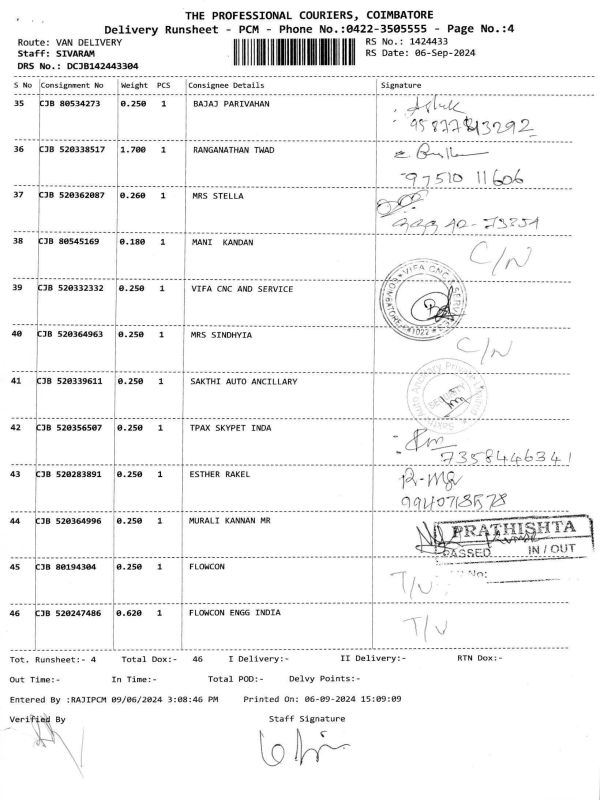 THE PROFESSIONAL COURIERS, COIMBATORE
Delivery Runsheet - PCM - Phone No.:0422-3505555 - Page No.:4
Route: VAN DELIVERY
RS No.: 1424433
Staff: SIVARAM
RS Date: 06-Sep-2024
DRS No.: DCJB142443304
S No Consignment No Weight PCS Consignee Details Signature
35 CJB 80534273 0.250 1 BAJAJ PARIVAHAN
36 CJB 520338517 1.700 1 RANGANATHAN TWAD
97510 11606
37 CJB 520362087 0.260 1 MRS STELLA
38 CJB 80545169 0.180 1 MANI KANDAN C/N
39 CJB 520332332 0.250 1 VIFA CNC AND SERVICE
VIFA CNC & SERVICE
40 CJB 520364963 0.250 1 MRS SINDHYIA C/N
41 CJB 520339611 0.250 1 SAKTHI AUTO ANCILLARY
42 CJB 520356507 0.250 1 TPAX SKYPET INDA
7358446341
43 CJB 520283891 0.250 1 ESTHER RAKEL
44 CJB 520364996 0.250 1 MURALI KANNAN MR
PRATHISHTA
PASSED IN / OUT
No:
45 CJB 80194304 0.250 1 FLOWCON
46 CJB 520247486 0.620 1 FLOWCON ENGG INDIA
Tot. Runsheet:- 4 Total Dox:- 46 I Delivery:- II Delivery:- RTN Dox:-
Out Time:- In Time:- Total POD:- Delvy Points:-
Entered By :RAJIPCM 09/06/2024 3:08:46 PM Printed On: 06-09-2024 15:09:09
Verified By Staff Signature